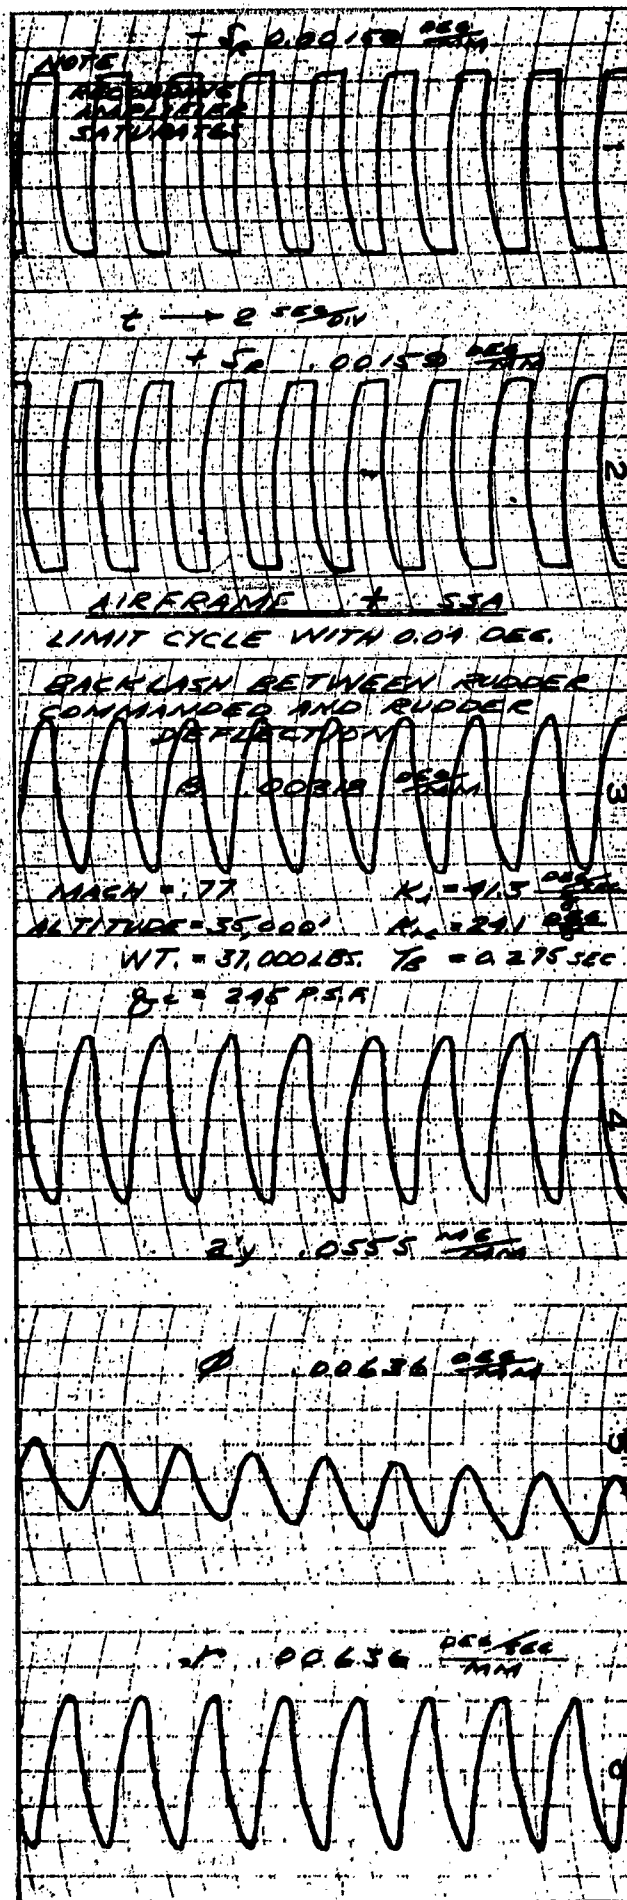 - δR 0.00159 DEG/MM
NOTE
RECORDING
AMPLIFIER
SATURATES
1
t → 2 SEC/DIV
+ δR .00159 DEG/MM
2
AIRFRAME + SSA
LIMIT CYCLE WITH 0.04 DEG.
BACKLASH BETWEEN RUDDER
COMMANDED AND RUDDER
DEFLECTION
β .00318 DEG/MM
3
MACH = .77
ALTITUDE = 35,000'
WT. = 37,000 LBS. τB = 0.275 SEC
qc = 245 P.S.F.
4
a'y .0555 MG/MM
Ø .00636 DEG/MM
5
r .00636 DEG/SEC/MM
6